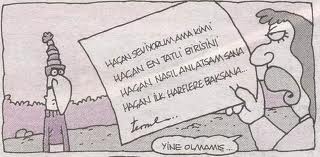 HAÇAN SEVİYORUM AMA KİMİ
HAÇAN EN TATLİ BİRİSİNİ
HAÇAN NASIL ANLATSAM SANA
HAÇAN İLK HARFLERE BAKSANA...
temel...
YİNE OLMAMIŞ...